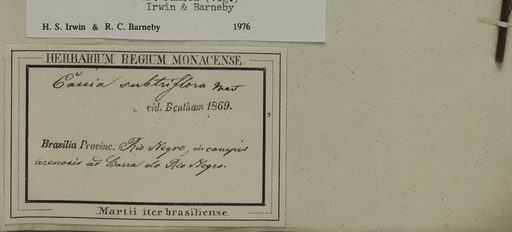 Irwin & Barneby
H. S. Irwin & R. C. Barneby 1976
HERBARIUM REGIUM MONACENSE.
Cassia subtriflora Mart
vid. Bentham 1869.
Brasilia Provinc. Rio Negro, in campis
arenosis ad Barra do Rio Negro.
Martii iter brasiliense.